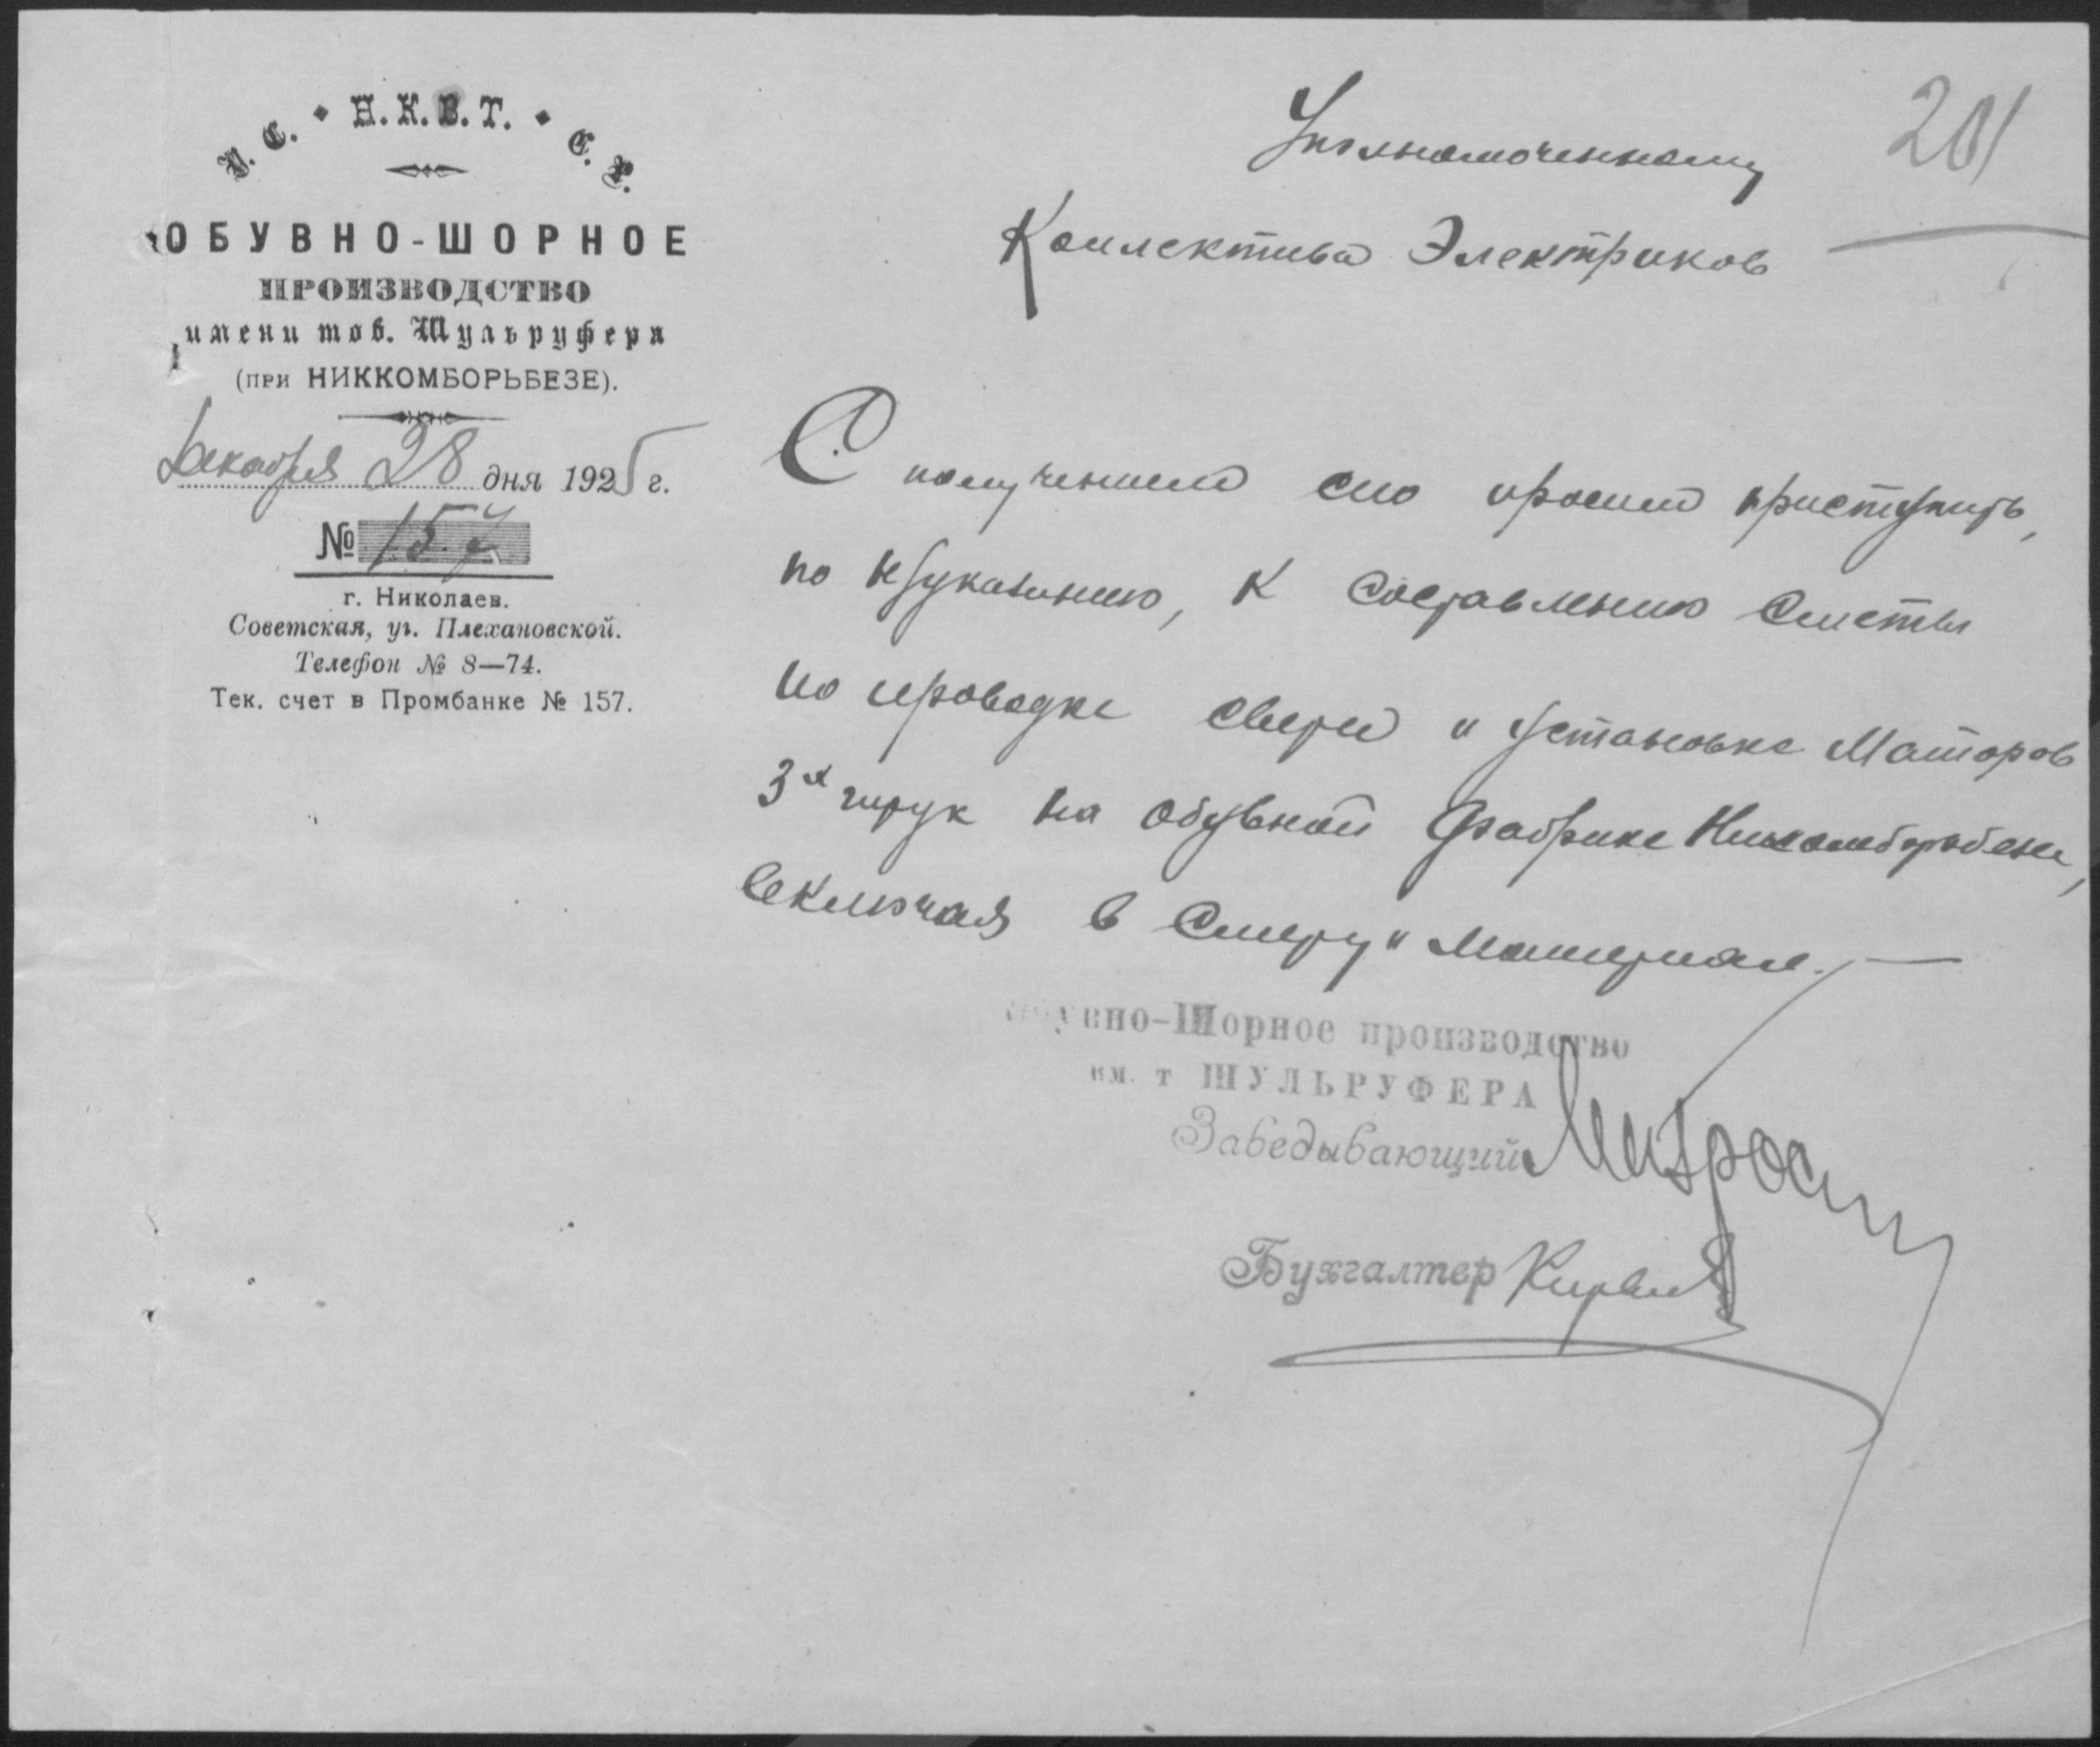 У. С. Н. К. В. Т. С. Р.
ОБУВНО-ШОРНОЕ
ПРОИЗВОДСТВО
имени тов. Шульруфера
(ПРИ НИККОМБОРЬБЕЗЕ).
Декабря 28 дня 1925 г.
№ 157
г. Николаев.
Советская, уг. Плехановской.
Телефон № 8—74.
Тек. счет в Промбанке № 157.
201
Уполномоченному
Коллектива Электриков
С получением сего просим приступить,
по к составлению сметы
по проводке свету и установке Моторов
3х штук на обувной Фабрике Никкомборьбезе,
включая в Смету и Материал. —
Обувно-Шорное производство
им. т ШУЛЬРУФЕРА
Заведывающий
Бухгалтер